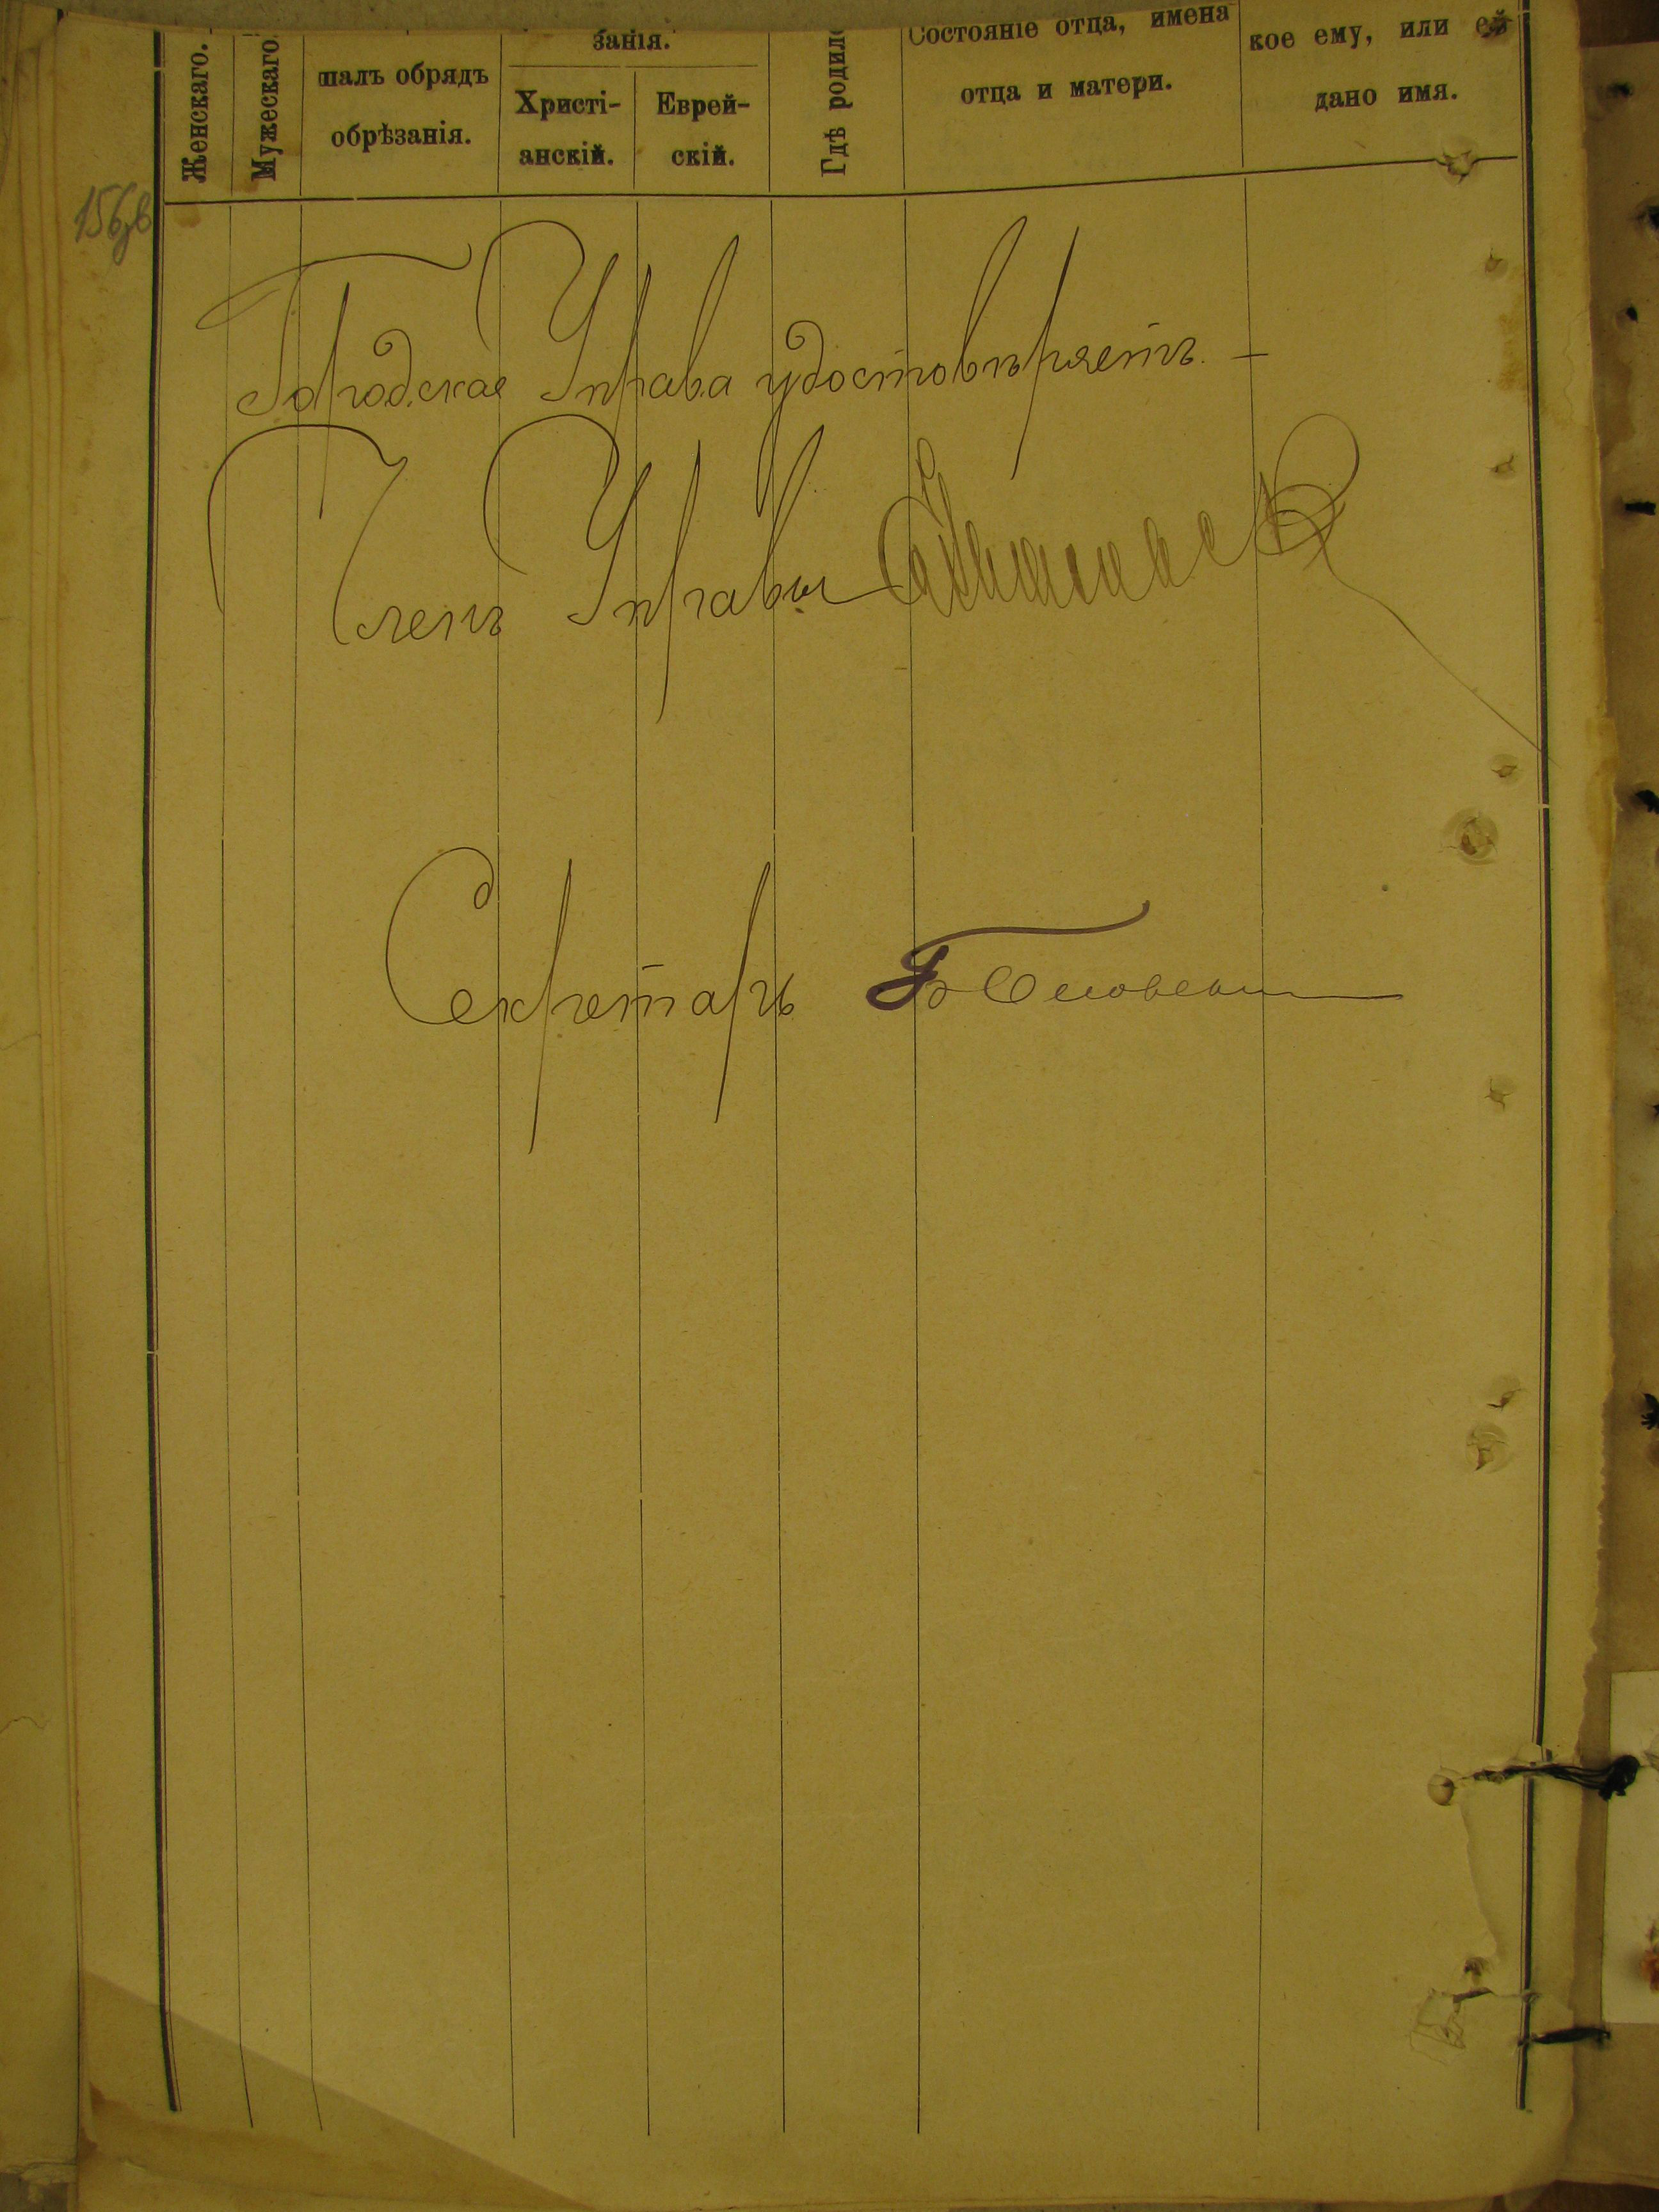 Женскаго.
Мужескаго
шалъ обрядъ
обрѣзанія.
занія.
Христі-
анскій.
Еврей-
скій.
Гдѣ родил
Состояніе отца, имена
отца и матери.
кое ему, или ей
дано имя.
Городская Управа удостовѣряетъ. —
Членъ Управы
Секретарь